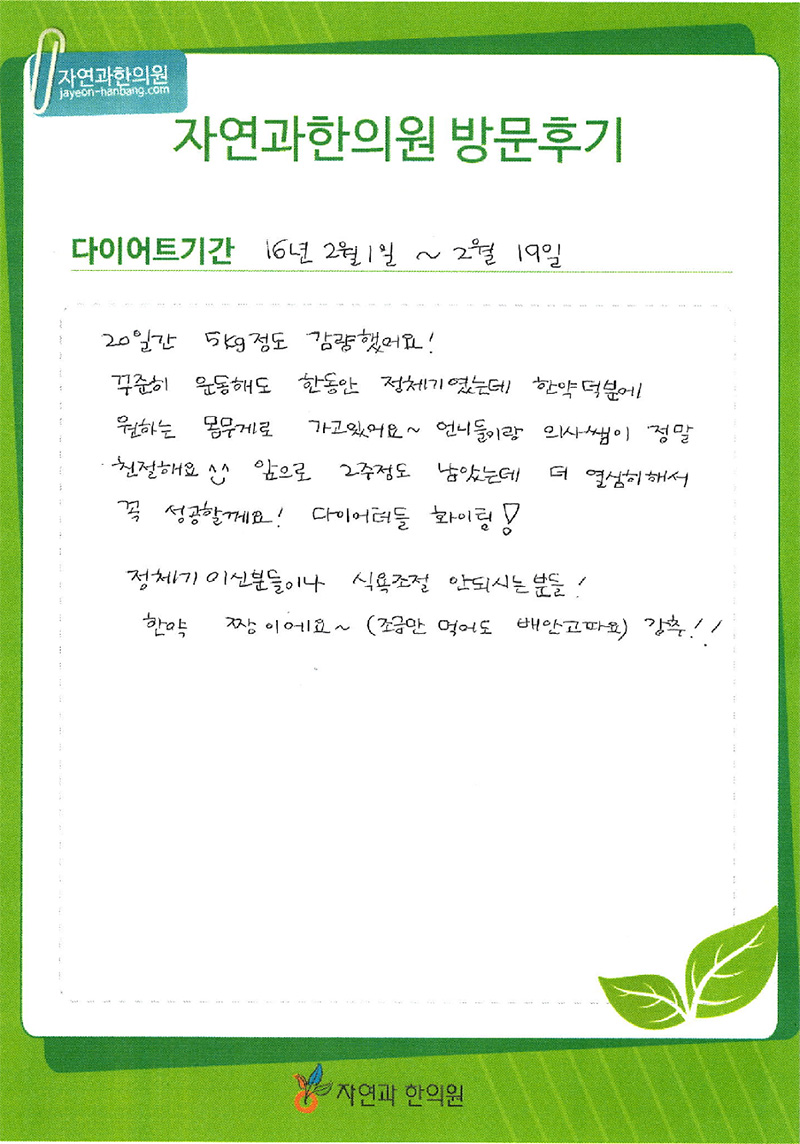 자연과한의원
jayeon-hanbang.com
자연과한의원 방문후기
다이어트기간 16년 2월 1일 ~ 2월 19일
20일간 5kg정도 감량했어요!
꾸준히 운동해도 한동안 정체기였는데 한약덕분에
원하는 몸무게로 가고있어요~ 언니들이랑 의사쌤이 정말
친절해요 앞으로 2주정도 남았는데 더 열심히해서
꼭 성공할께요! 다이어터들 화이팅!
정체기이신분들이나 식욕조절 안되시는분들!
한약 짱이에요~ (조금만 먹어도 배안고파요) 강추!!
자연과 한의원